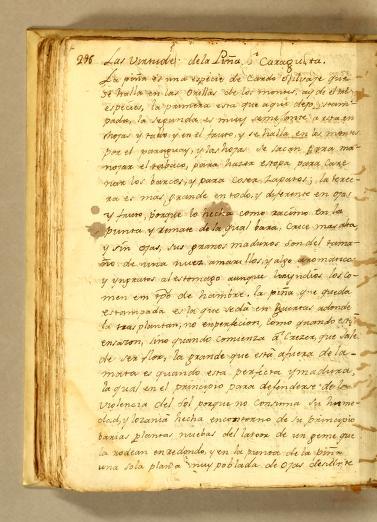 296 Las Virtudes de la Piña, ô Caraguata.
La piña es una especie de Cardo Silvestre que
se halla en las orillas de los montes, ay de el tres
especies, la primera esta que aqui dejo estam-
pado, la segunda es muy semejante a esta en
hojas y tallo, y en el fruto, y se halla en los montes
por el paraguay, y las hojas se sacan para ma-
nojar el tabaco, para hazer estopa para Care-
nar los barcos, y para coser Zapatos; la terce-
ra es mas grande en todo, y diferente en ojas
y fruto, porque lo hecha como racimo en la
punta y remate de la qual bara, Crece mas alta
y sin ojas, sus granos maduros son del tama-
ño de una nuez amarillos, y algo aromatica
y yngratos al estomago aunque los yndios los co-
men en tpo de hambre. la piña que queda
estampada es la que se da en huertas adonde
la trasplantan, no en perfecion, como quando está
en sazon, sino quando comienza â Crezer, que sale
de ser flor, la grande que está afuera de la
mata es quando esta perfecta y madura,
la qual en el principio para defenderse de la
violencia del Sol porque no consuma su hume-
dad, y lozania hecha en contorno de su principio
barias plantas nuebas del largor de un geme que
la rodean en redondo, y en la punta de la piña
una sola planta muy poblada de ojas